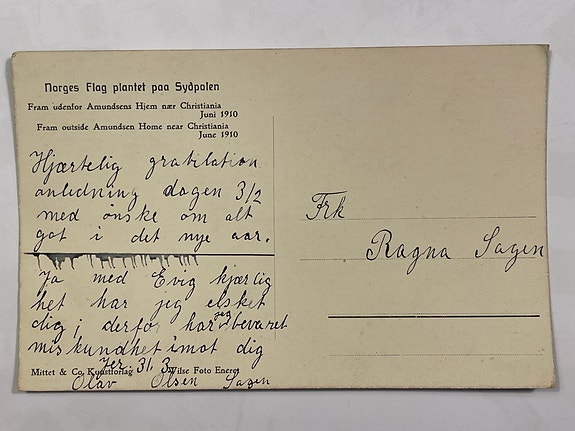 Norges Flag plantet paa Sydpolen
Fram udenfor Amundsens Hjem nær Christiania
Juni 1910
Fram outside Amundsen Home near Christiania
June 1910
Hjærtelig gratilation
anledning dagen 3/2
med ønske om alt
got i det nye aar.
Ja med Evig kjærlig
het har jeg elsket
dig, derfor har jeg bevaret
miskundhet imot dig
Jer. 31, 3.
Mittet & Co. Kunstforlag Wilse Foto Eneret
Olav Olsen Sagen
Frk
Ragna Sagen